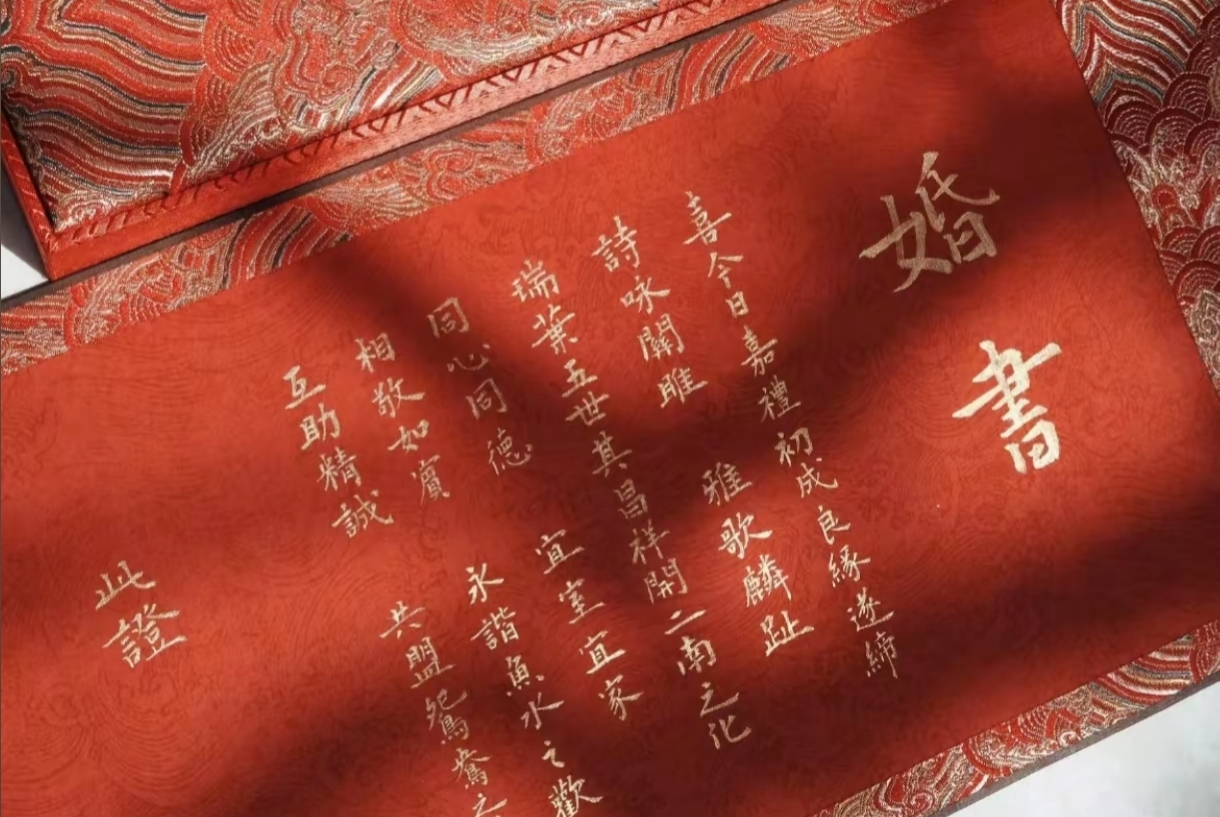 婚書
喜今日嘉禮初成良緣遂締
詩咏關雎 雅歌麟趾
瑞葉五世其昌祥開二南之化
同心同德 宜室宜家
相敬如賓 永諧魚水之歡
互助精誠 共盟鴛鴦之
此證